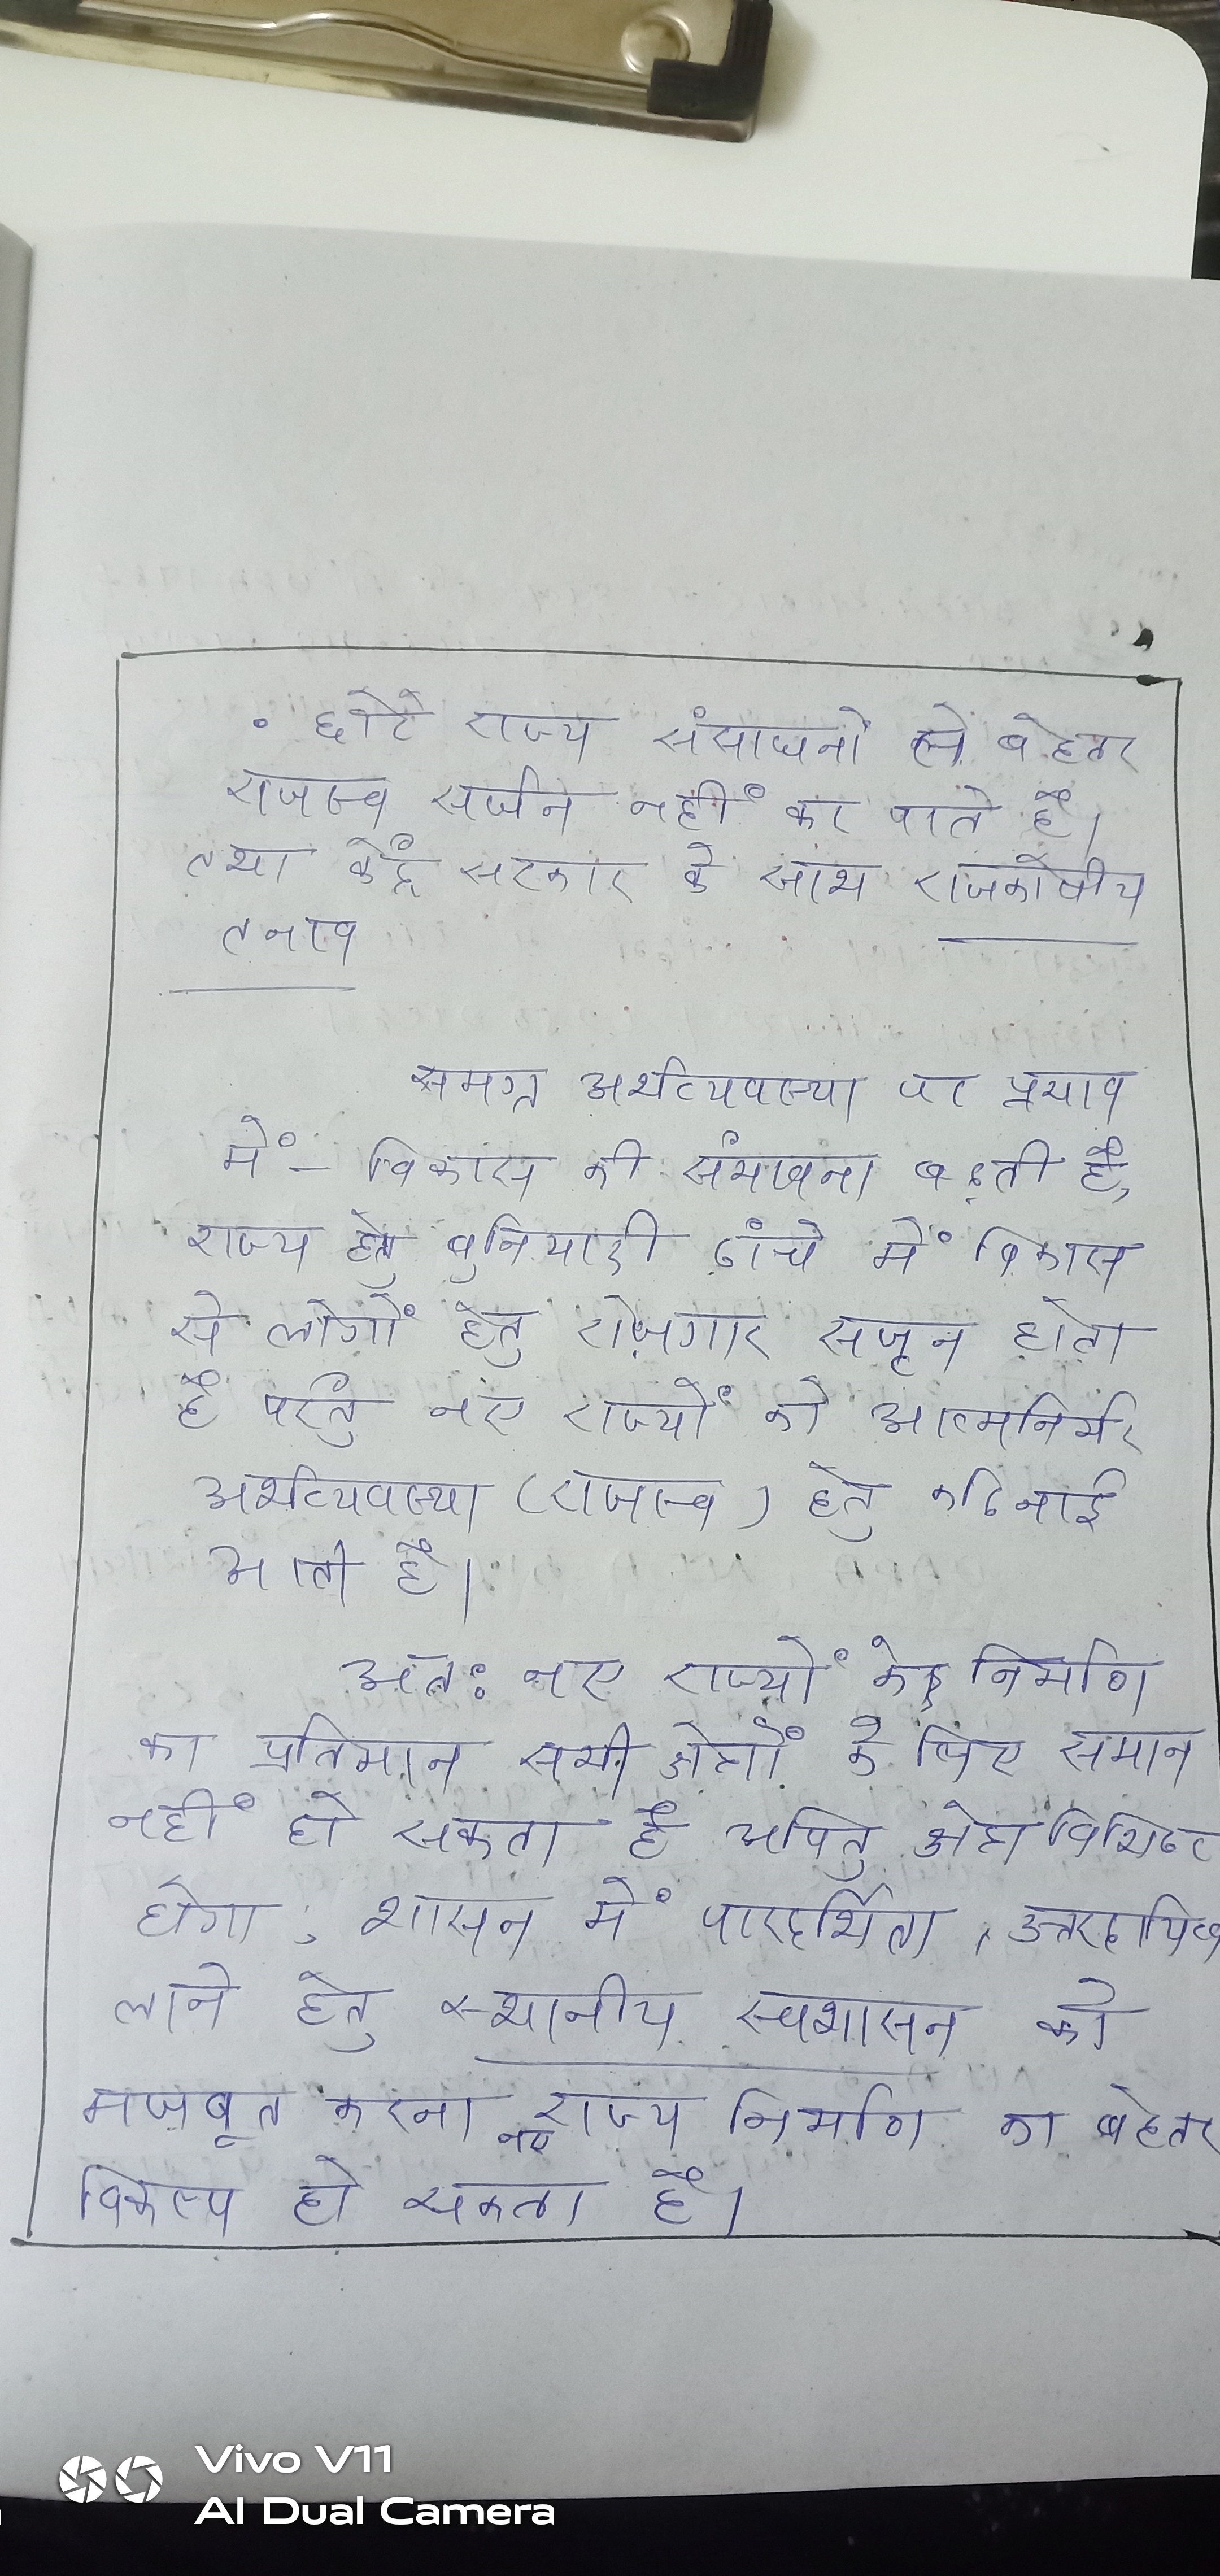 • छोटे राज्य संसाधनों से बेहतर
राजस्व सर्जन नहीं कर पाते हैं।
तथा केंद्र सरकार के साथ राजकोषीय
तनाव
समग्र अर्थव्यवस्था पर प्रभाव
में - विकास की संभावना बढ़ती है,
राज्य हेतु बुनियादी ढांचे में विकास
से लोगों हेतु रोज़गार सजृन होता
है परंतु नए राज्यों को आत्मनिर्भर
अर्थव्यवस्था (राजस्व) हेतु कठिनाई
आती है।
अतः नए राज्यों के निर्माण
का प्रतिमान सभी क्षेत्रों के लिए समान
नहीं हो सकता है अपितु क्षेत्र विशिष्ट
होगा, शासन में पारदर्शिता, उत्तरदायित्व
लाने हेतु स्थानीय स्वशासन को
मज़बूत करना नए राज्य निर्माण का बेहतर
विकल्प हो सकता है।
Vivo V11
AI Dual Camera